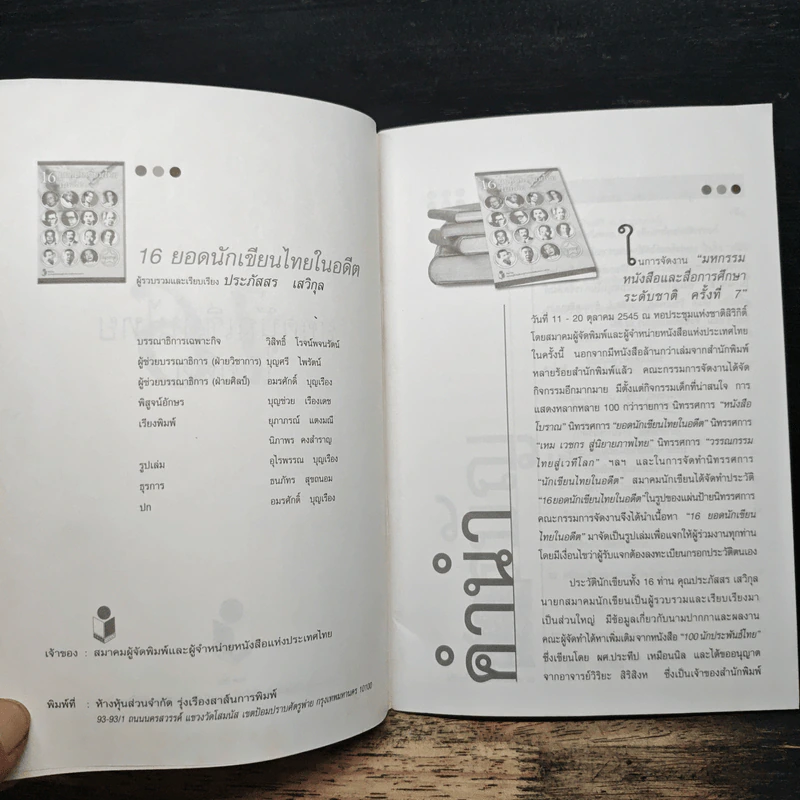 16 ยอดนักเขียนไทยในอดีต
ผู้รวบรวมและเรียบเรียง ประภัสสร เสวิกุล
บรรณาธิการเฉพาะกิจ วิสิทธิ์ โรจน์พจนรัตน์
ผู้ช่วยบรรณาธิการ (ฝ่ายวิชาการ) บุญศรี ไพรัตน์
ผู้ช่วยบรรณาธิการ (ฝ่ายศิลป์) อมรศักดิ์ บุญเรือง
พิสูจน์อักษร บุญช่วย เรืองเดช
เรียงพิมพ์ ยุภาภรณ์ แดงมณี
นิภาพร คงสำราญ
รูปเล่ม อุไรพรรณ บุญเรือง
ธุรการ ธนภัทร สุขถนอม
ปก อมรศักดิ์ บุญเรือง
เจ้าของ : สมาคมผู้จัดพิมพ์และผู้จำหน่ายหนังสือแห่งประเทศไทย
พิมพ์ที่ : ห้างหุ้นส่วนจำกัด รุ่งเรืองสาส์นการพิมพ์
93-93/1 ถนนนครสวรรค์ แขวงวัดโสมนัส เขตป้อมปราบศัตรูพ่าย กรุงเทพมหานคร 10100
16
16
คำนำ
ในการจัดงาน "มหกรรม
หนังสือและสื่อการศึกษา
ระดับชาติ ครั้งที่ 7"
วันที่ 11 - 20 ตุลาคม 2545 ณ หอประชุมแห่งชาติสิริกิติ์
โดยสมาคมผู้จัดพิมพ์และผู้จำหน่ายหนังสือแห่งประเทศไทย
ในครั้งนี้ นอกจากมีหนังสือล้านกว่าเล่มจากสำนักพิมพ์
หลายร้อยสำนักพิมพ์แล้ว คณะกรรมการจัดงานได้จัด
กิจกรรมอีกมากมาย มีตั้งแต่กิจกรรมเด็กที่น่าสนใจ การ
แสดงหลากหลาย 100 กว่ารายการ นิทรรศการ "หนังสือ
โบราณ" นิทรรศการ "ยอดนักเขียนไทยในอดีต" นิทรรศการ
"เหม เวชกร สู่นิยายภาพไทย" นิทรรศการ "วรรณกรรม
ไทยสู่เวทีโลก" ฯลฯ และในการจัดทำนิทรรศการ
"นักเขียนไทยในอดีต" สมาคมนักเขียนได้จัดทำประวัติ
"16ยอดนักเขียนไทยในอดีต"ในรูปของแผ่นป้ายนิทรรศการ
คณะกรรมการจัดงานจึงได้นำเนื้อหา "16 ยอดนักเขียน
ไทยในอดีต" มาจัดเป็นรูปเล่มเพื่อแจกให้ผู้ร่วมงานทุกท่าน
โดยมีเงื่อนไขว่าผู้รับแจกต้องลงทะเบียนกรอกประวัติตนเอง
ประวัตินักเขียนทั้ง 16 ท่าน คุณประภัสสร เสวิกุล
นายกสมาคมนักเขียนเป็นผู้รวบรวมและเรียบเรียงมา
เป็นส่วนใหญ่ มีข้อมูลเกี่ยวกับนามปากกาและผลงาน
คณะผู้จัดทำได้หาเพิ่มเติมจากหนังสือ "100นักประพันธ์ไทย"
ซึ่งเขียนโดย ผศ.ประทีป เหมือนนิล และได้ขออนุญาต
จากอาจารย์วิริยะ สิริสิงห ซึ่งเป็นเจ้าของสำนักพิมพ์